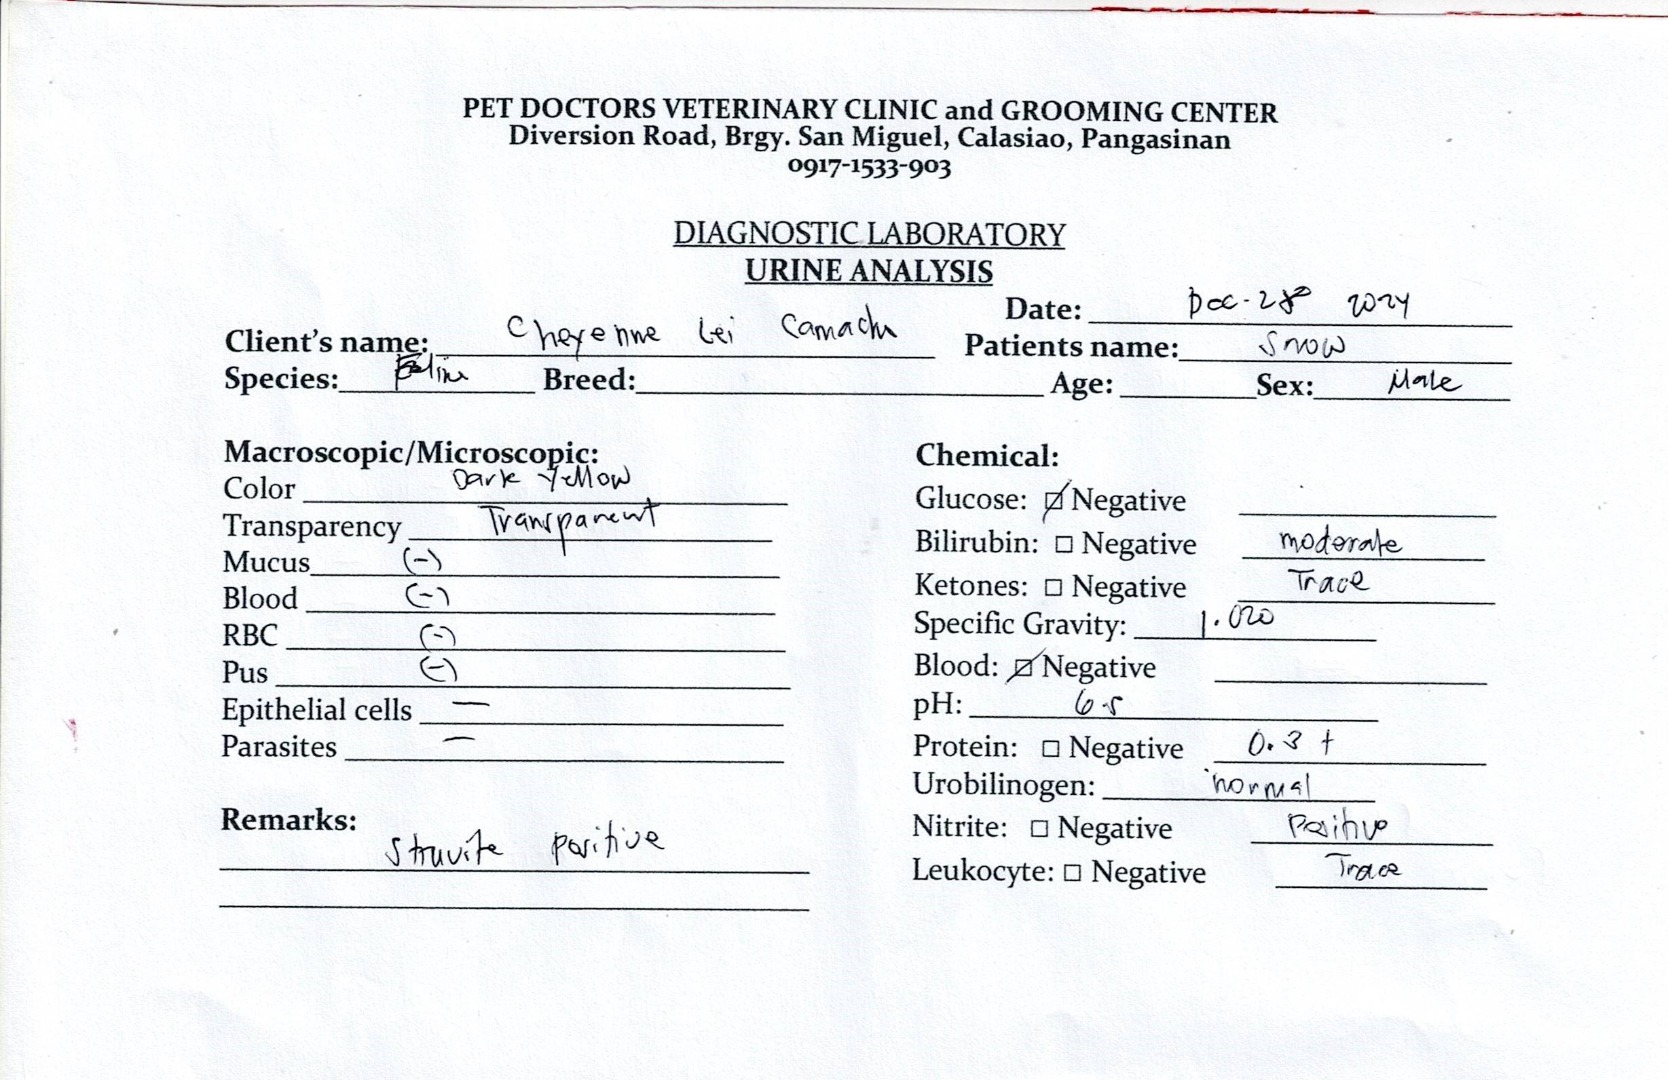 PET DOCTORS VETERINARY CLINIC and GROOMING CENTER
Diversion Road, Brgy. San Miguel, Calasiao, Pangasinan
0917-1533-903
DIAGNOSTIC LABORATORY
URINE ANALYSIS
Date: Dec-28 2024
Client's name: Cheyenne Lei Camacho Patients name: Snow
Species: Feline Breed: Age: Sex: Male
Macroscopic/Microscopic:
Color Dark Yellow
Transparency Transparent
Mucus (-)
Blood (-)
RBC (-)
Pus (-)
Epithelial cells —
Parasites —
Remarks:
Struvite positive
Chemical:
Glucose: ☑ Negative
Bilirubin: ☐ Negative moderate
Ketones: ☐ Negative Trace
Specific Gravity: 1.020
Blood: ☑ Negative
pH: 6.5
Protein: ☐ Negative 0.3 +
Urobilinogen: normal
Nitrite: ☐ Negative Positive
Leukocyte: ☐ Negative Trace